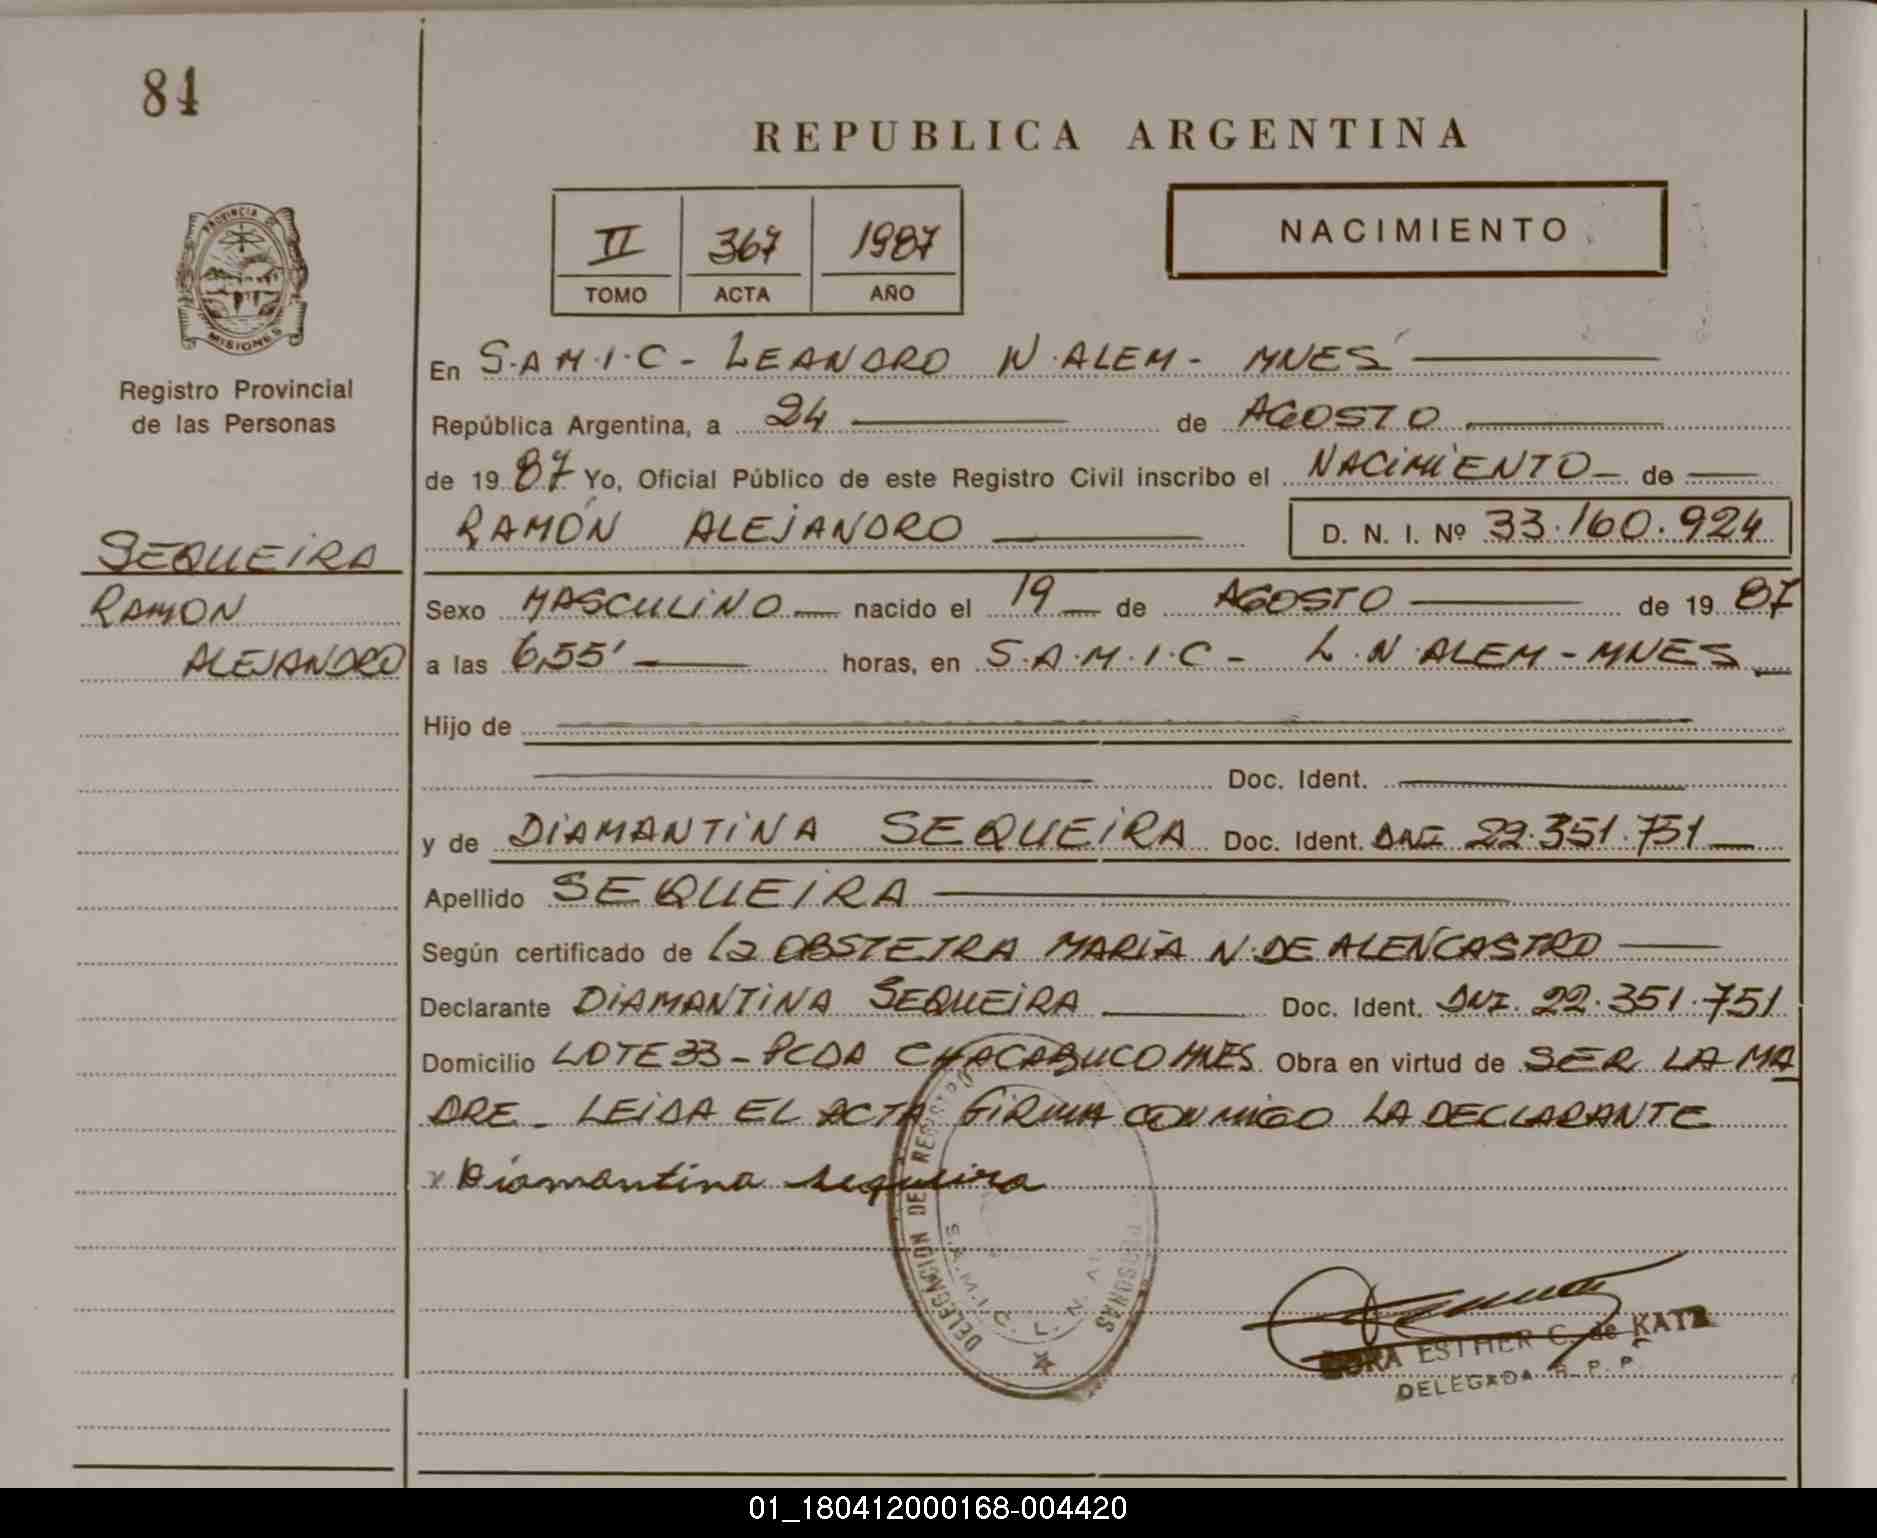 84
REPUBLICA ARGENTINA
II 367 1987
TOMO ACTA AÑO
NACIMIENTO
PROVINCIA DE
MISIONES
Registro Provincial
de las Personas
En S.A.M.I.C - LEANDRO N. ALEM - MNES
República Argentina, a 24 de AGOSTO
de 1987 Yo, Oficial Público de este Registro Civil inscribo el NACIMIENTO de
RAMÓN ALEJANDRO D. N. I. Nº 33.160.924
SEQUEIRA
RAMON
ALEJANDRO
Sexo MASCULINO nacido el 19 de AGOSTO de 1987
a las 6,55' horas, en S.A.M.I.C - L.N. ALEM - MNES
Hijo de
Doc. Ident.
y de DIAMANTINA SEQUEIRA Doc. Ident. DNI 22.351.751
Apellido SEQUEIRA
Según certificado de La OBSTETRA MARÍA N. DE ALENCASTRO
Declarante DIAMANTINA SEQUEIRA Doc. Ident. DNI. 22.351.751
Domicilio LOTE 33 - PCDA CHACABUCO MNES Obra en virtud de SER LA MA
DRE - LEIDA EL ACTA FIRMA CONMIGO LA DECLARANTE
x Diamantina Sequeira
DELEGACION DEL REGISTRO PERSONAS
S.A.M.I.C. L.N. AL
ESTHER C. de KATZ
DELEGADA R. P. P.
01_180412000168-004420